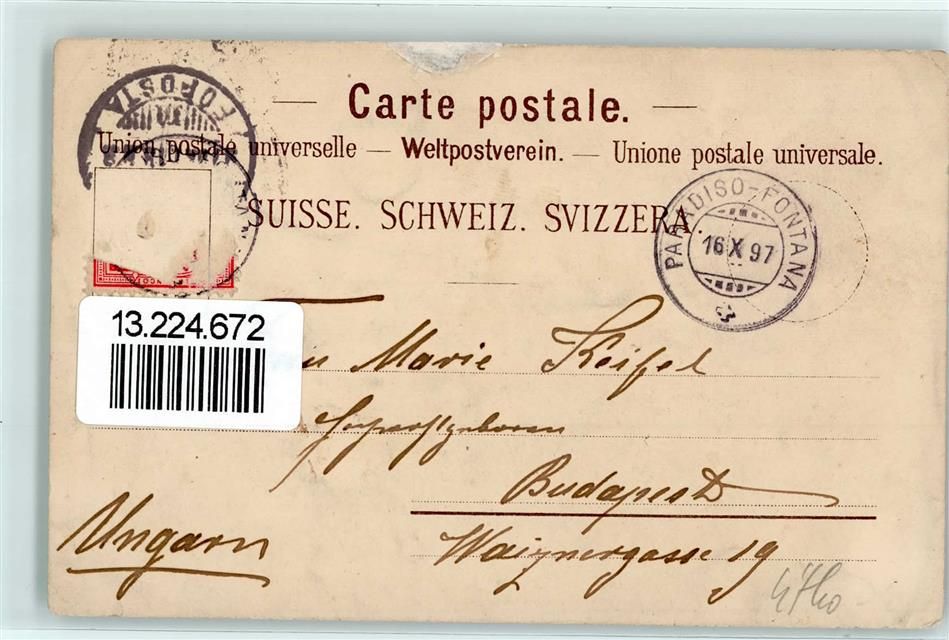 Carte postale.
Union postale universelle — Weltpostverein. — Unione postale universale.
SUISSE. SCHWEIZ. SVIZZERA.
FOPOSTA
PARADISO-FONTANA
16 X 97
13.224.672
Marie Keifel
Budapest
Waiznergasse 19
Ungarn